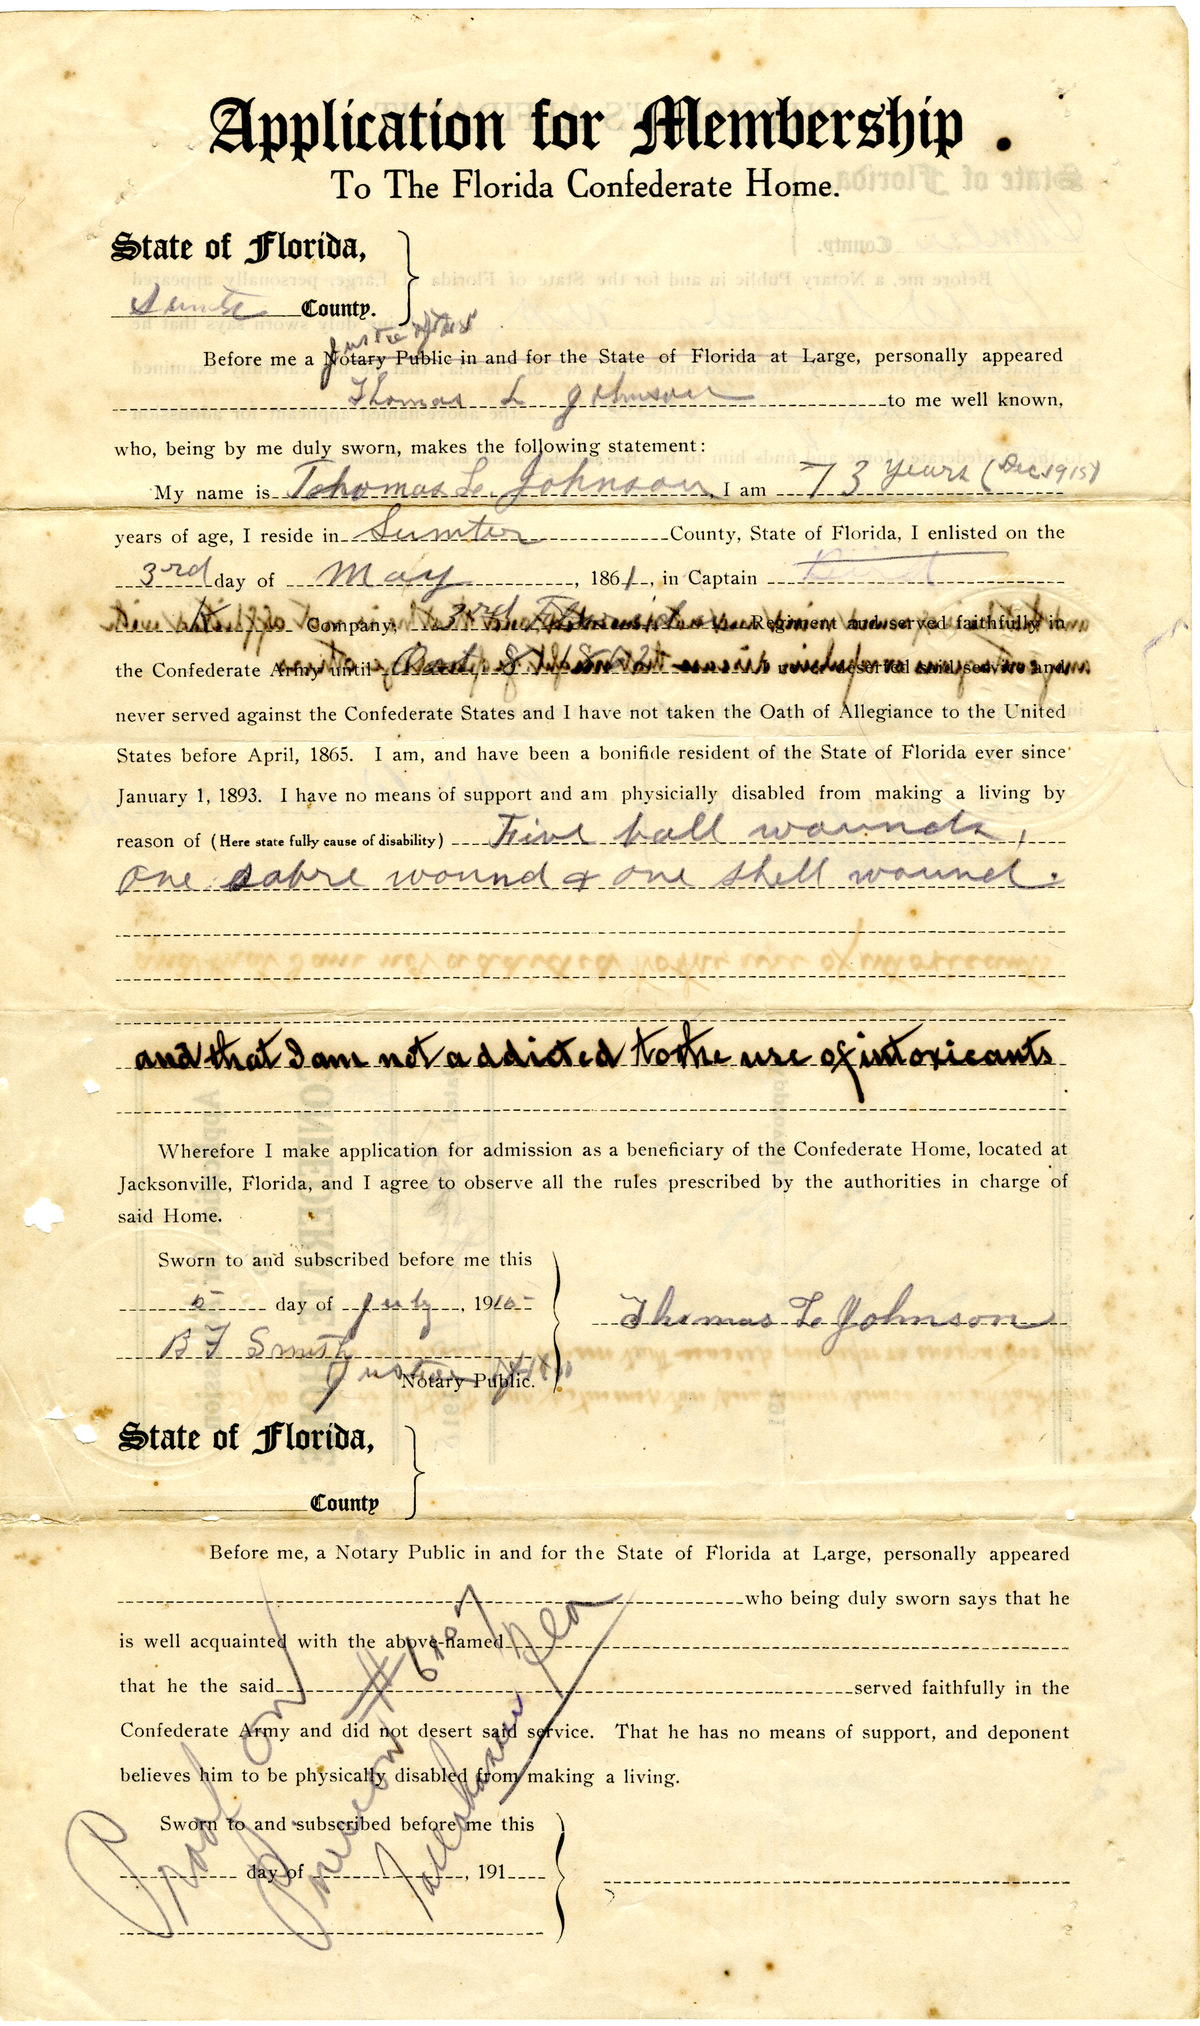 Application for Membership
To The Florida Confederate Home.
State of Florida,
Sumter County.
Justice of the
Before me a Notary Public in and for the State of Florida at Large, personally appeared
Thomas L Johnson to me well known,
who, being by me duly sworn, makes the following statement:
My name is Thomas L. Johnson, I am 73 years (Dec 1915)
years of age, I reside in Sumter County, State of Florida, I enlisted on the
3rd day of May, 1861, in Captain
Company, 3rd Florida Regiment and served faithfully in
the Confederate Army until never deserted said service and
never served against the Confederate States and I have not taken the Oath of Allegiance to the United
States before April, 1865. I am, and have been a bonifide resident of the State of Florida ever since
January 1, 1893. I have no means of support and am physicially disabled from making a living by
reason of (Here state fully cause of disability) Five ball wounds,
one sabre wound & one shell wound.
and that I am not addicted to the use of intoxicants
Wherefore I make application for admission as a beneficiary of the Confederate Home, located at
Jacksonville, Florida, and I agree to observe all the rules prescribed by the authorities in charge of
said Home.
Sworn to and subscribed before me this
5 day of July, 1915
Thomas L Johnson
B F Smith
Justice
Notary Public.
State of Florida,
County
Before me, a Notary Public in and for the State of Florida at Large, personally appeared
who being duly sworn says that he
is well acquainted with the above-named
that he the said served faithfully in the
Confederate Army and did not desert said service. That he has no means of support, and deponent
believes him to be physically disabled from making a living.
Sworn to and subscribed before me this
day of , 191
Proof on
Pension #
Tallahassee Fla